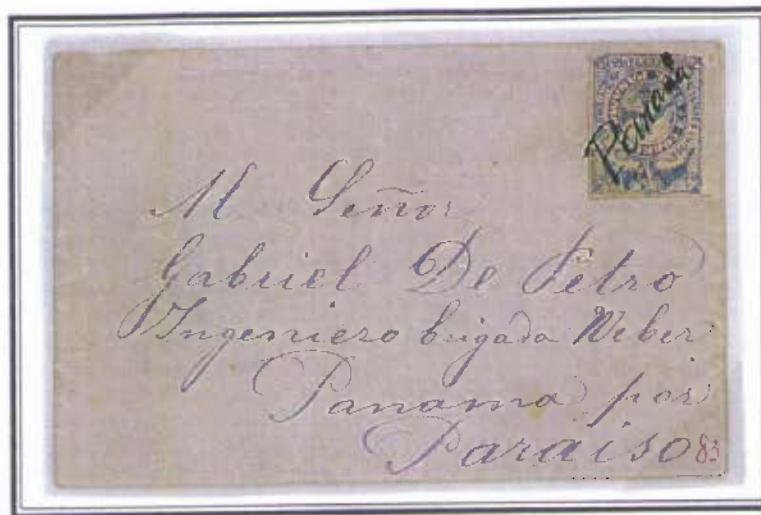 Panamá
Al Señor
Gabriel De Petro
Ingeniero brigada Weber
Panama por
Paraiso 83